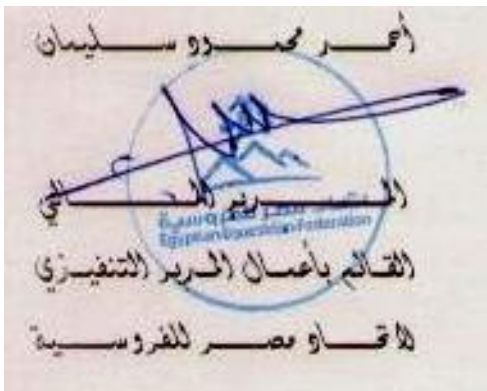 أحمد محمود سليمان
المدير المالي
Egyptian Equestrian Federation
القائم بأعمال المدير التنفيذي
لاتحاد مصر للفروسية